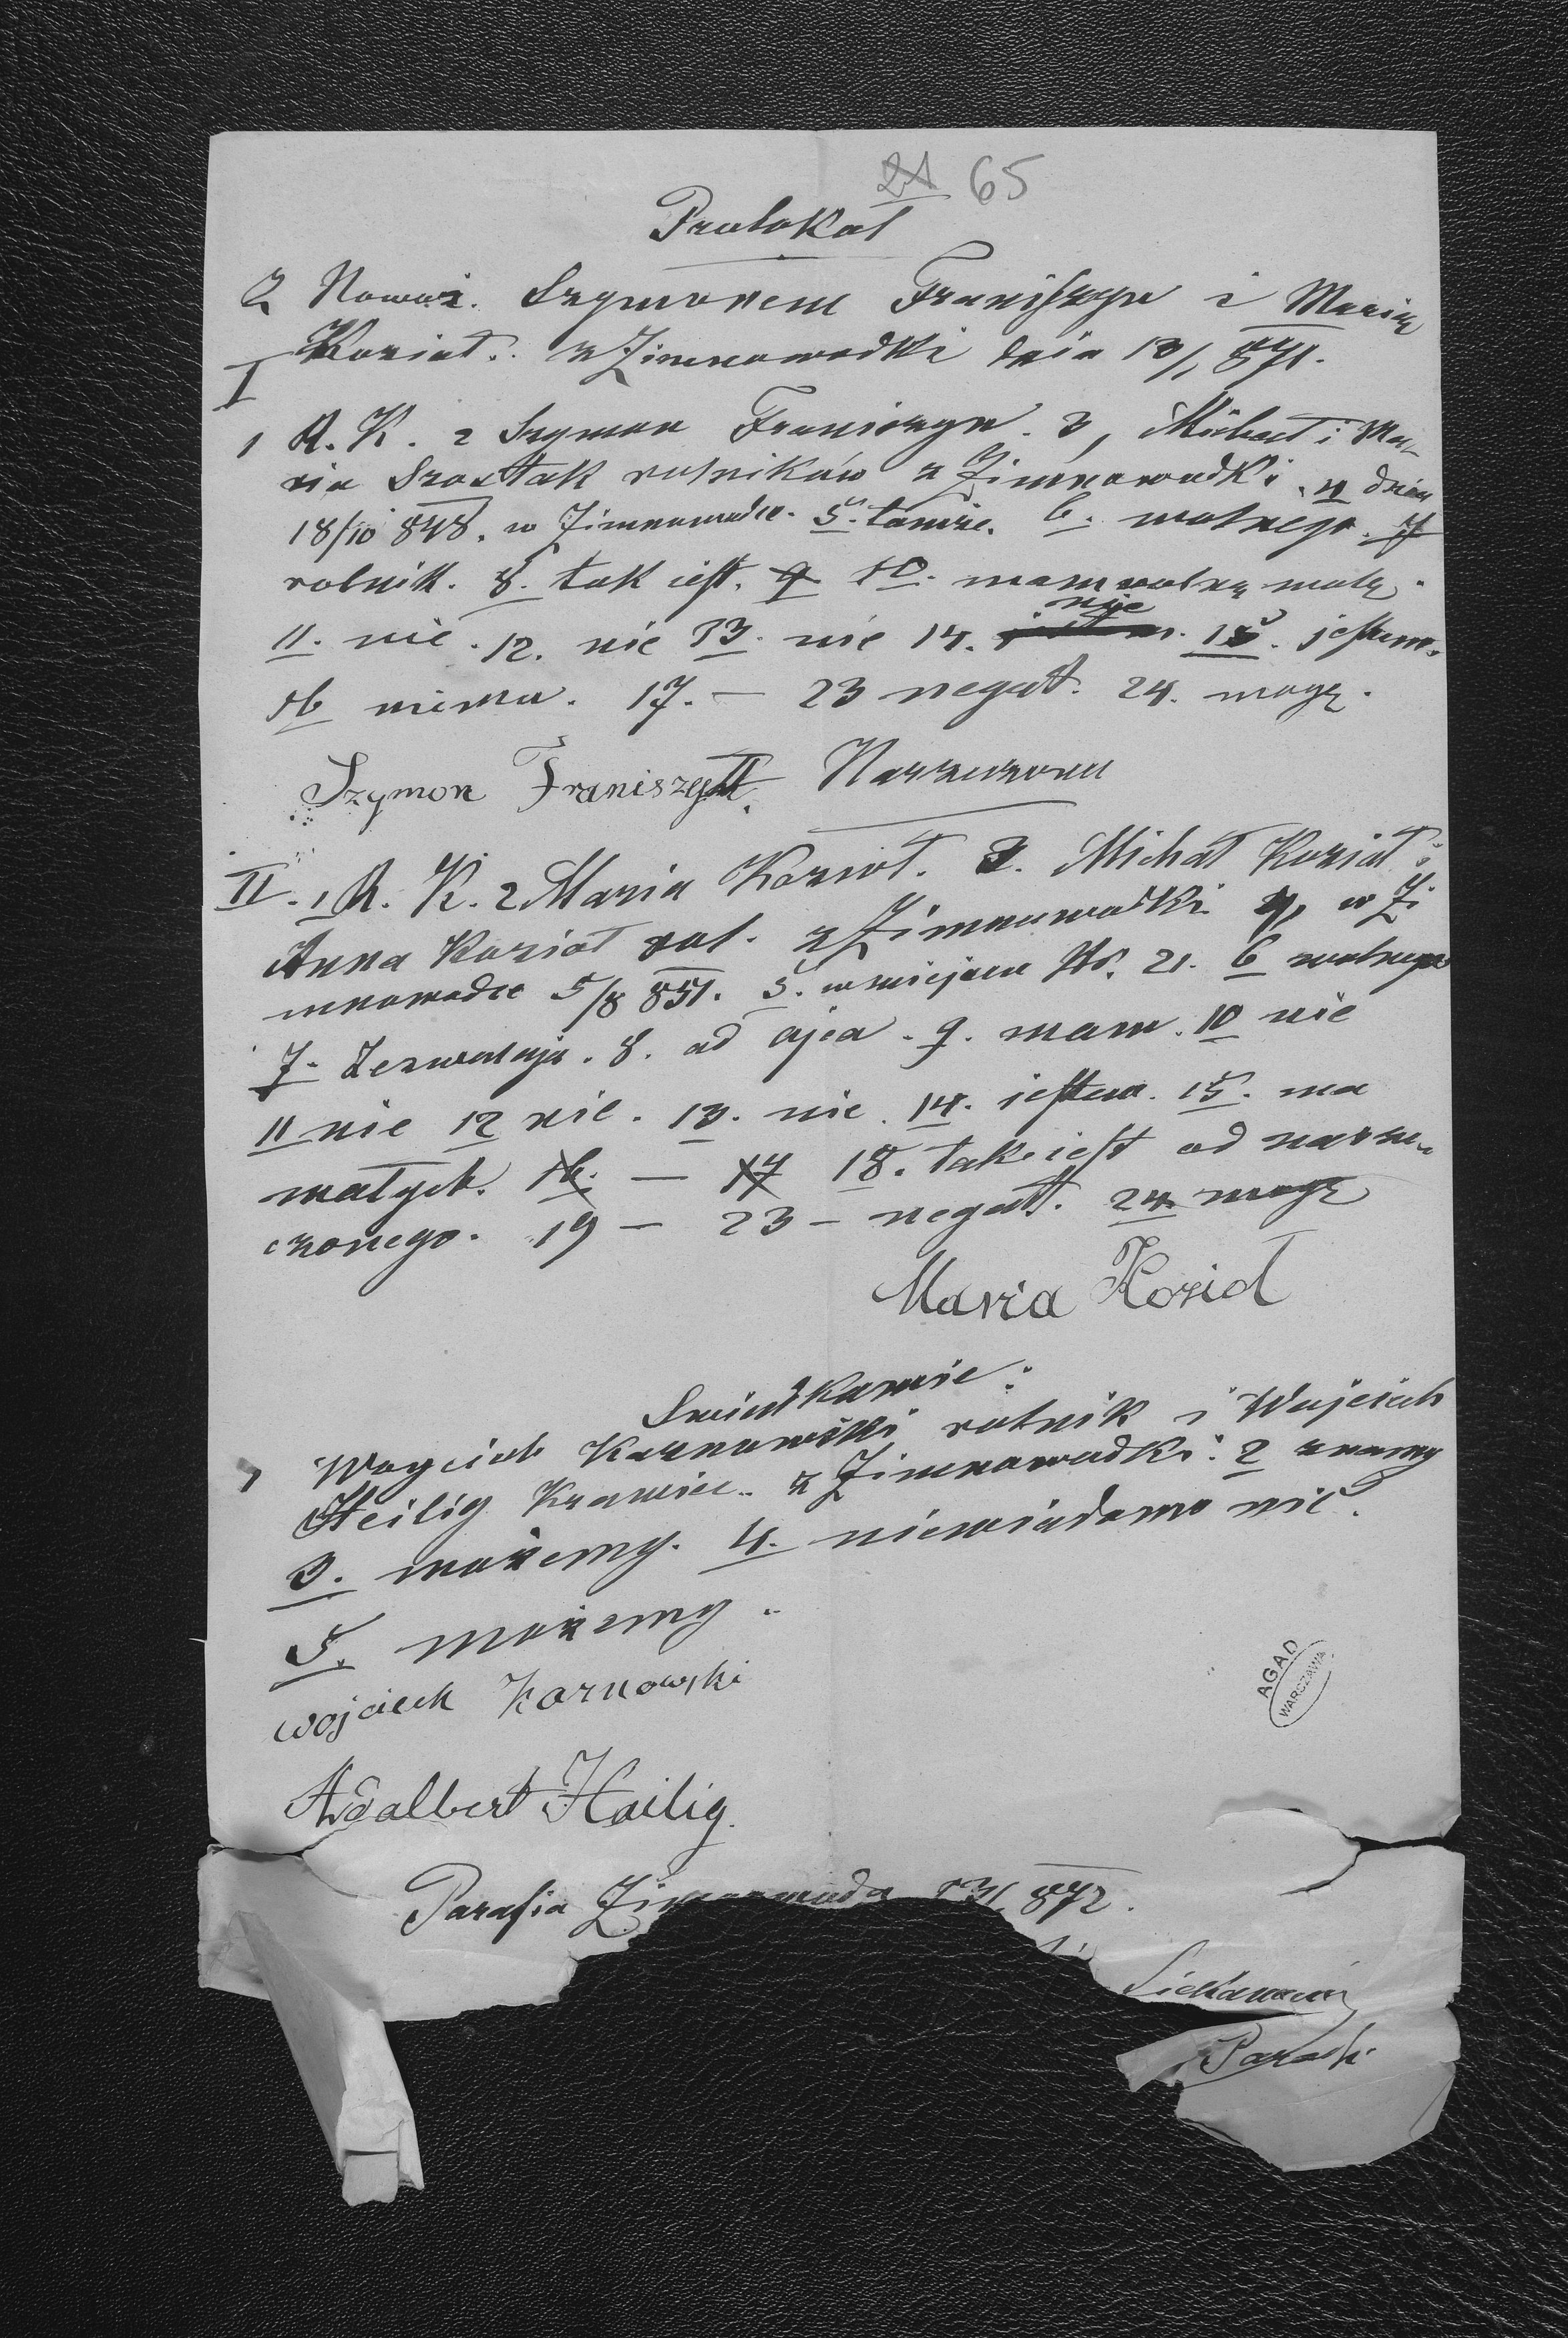 21 65
Protokół
Z Nowoż. Szymonem Franiszyn i Marią
Kozioł. z Zimnowodki dnia 13/1 871.
I
1 R. K. 2 Szymon Franiszyn. 3, Michał i Ma-
ria Szostak rolników z Zimnowodki. 4 dnia
18/10 848. w Zimnowodce. 5. tamże. 6. wolnego. 7
rolnik. 8. tak jest. 9 10. mam wolną wolę.
nie
11. nie. 12. nie 13. nie 14. jestem. 15. jestem.
16 niema. 17. — 23 negat. 24. mogę.
Szymon Franiszyn Narzeczony
II. 1 R. K. 2 Maria Kozioł. 3. Michał Kozioł i
Anna Kozioł rol. z Zimnowodki 4, w Zi
mnowodce 5/8 851. 5. w miejscu No. 21. 6 wolnego
7. Zezwalają. 8. od ojca. 9. mam. 10 nie
11 nie 12 nie. 13. nie. 14. jestem. 15. ma
małych. 16. — 17 18. tak jest od narze-
czonego. 19 — 23 — negat. 24. mogę
Maria Kozioł
Swiadkowie:
1 Woyciech Karnowski rolnik i Wojciech
Heilig Krawiec. z Zimnowodki. 2 znamy
3. możemy. 4. niewiadomo nic.
5. możemy.
wojciech Karnowski
AGAD
WARSZAWA
Adalbert Hailig.
Parafia 872.
Paroch.